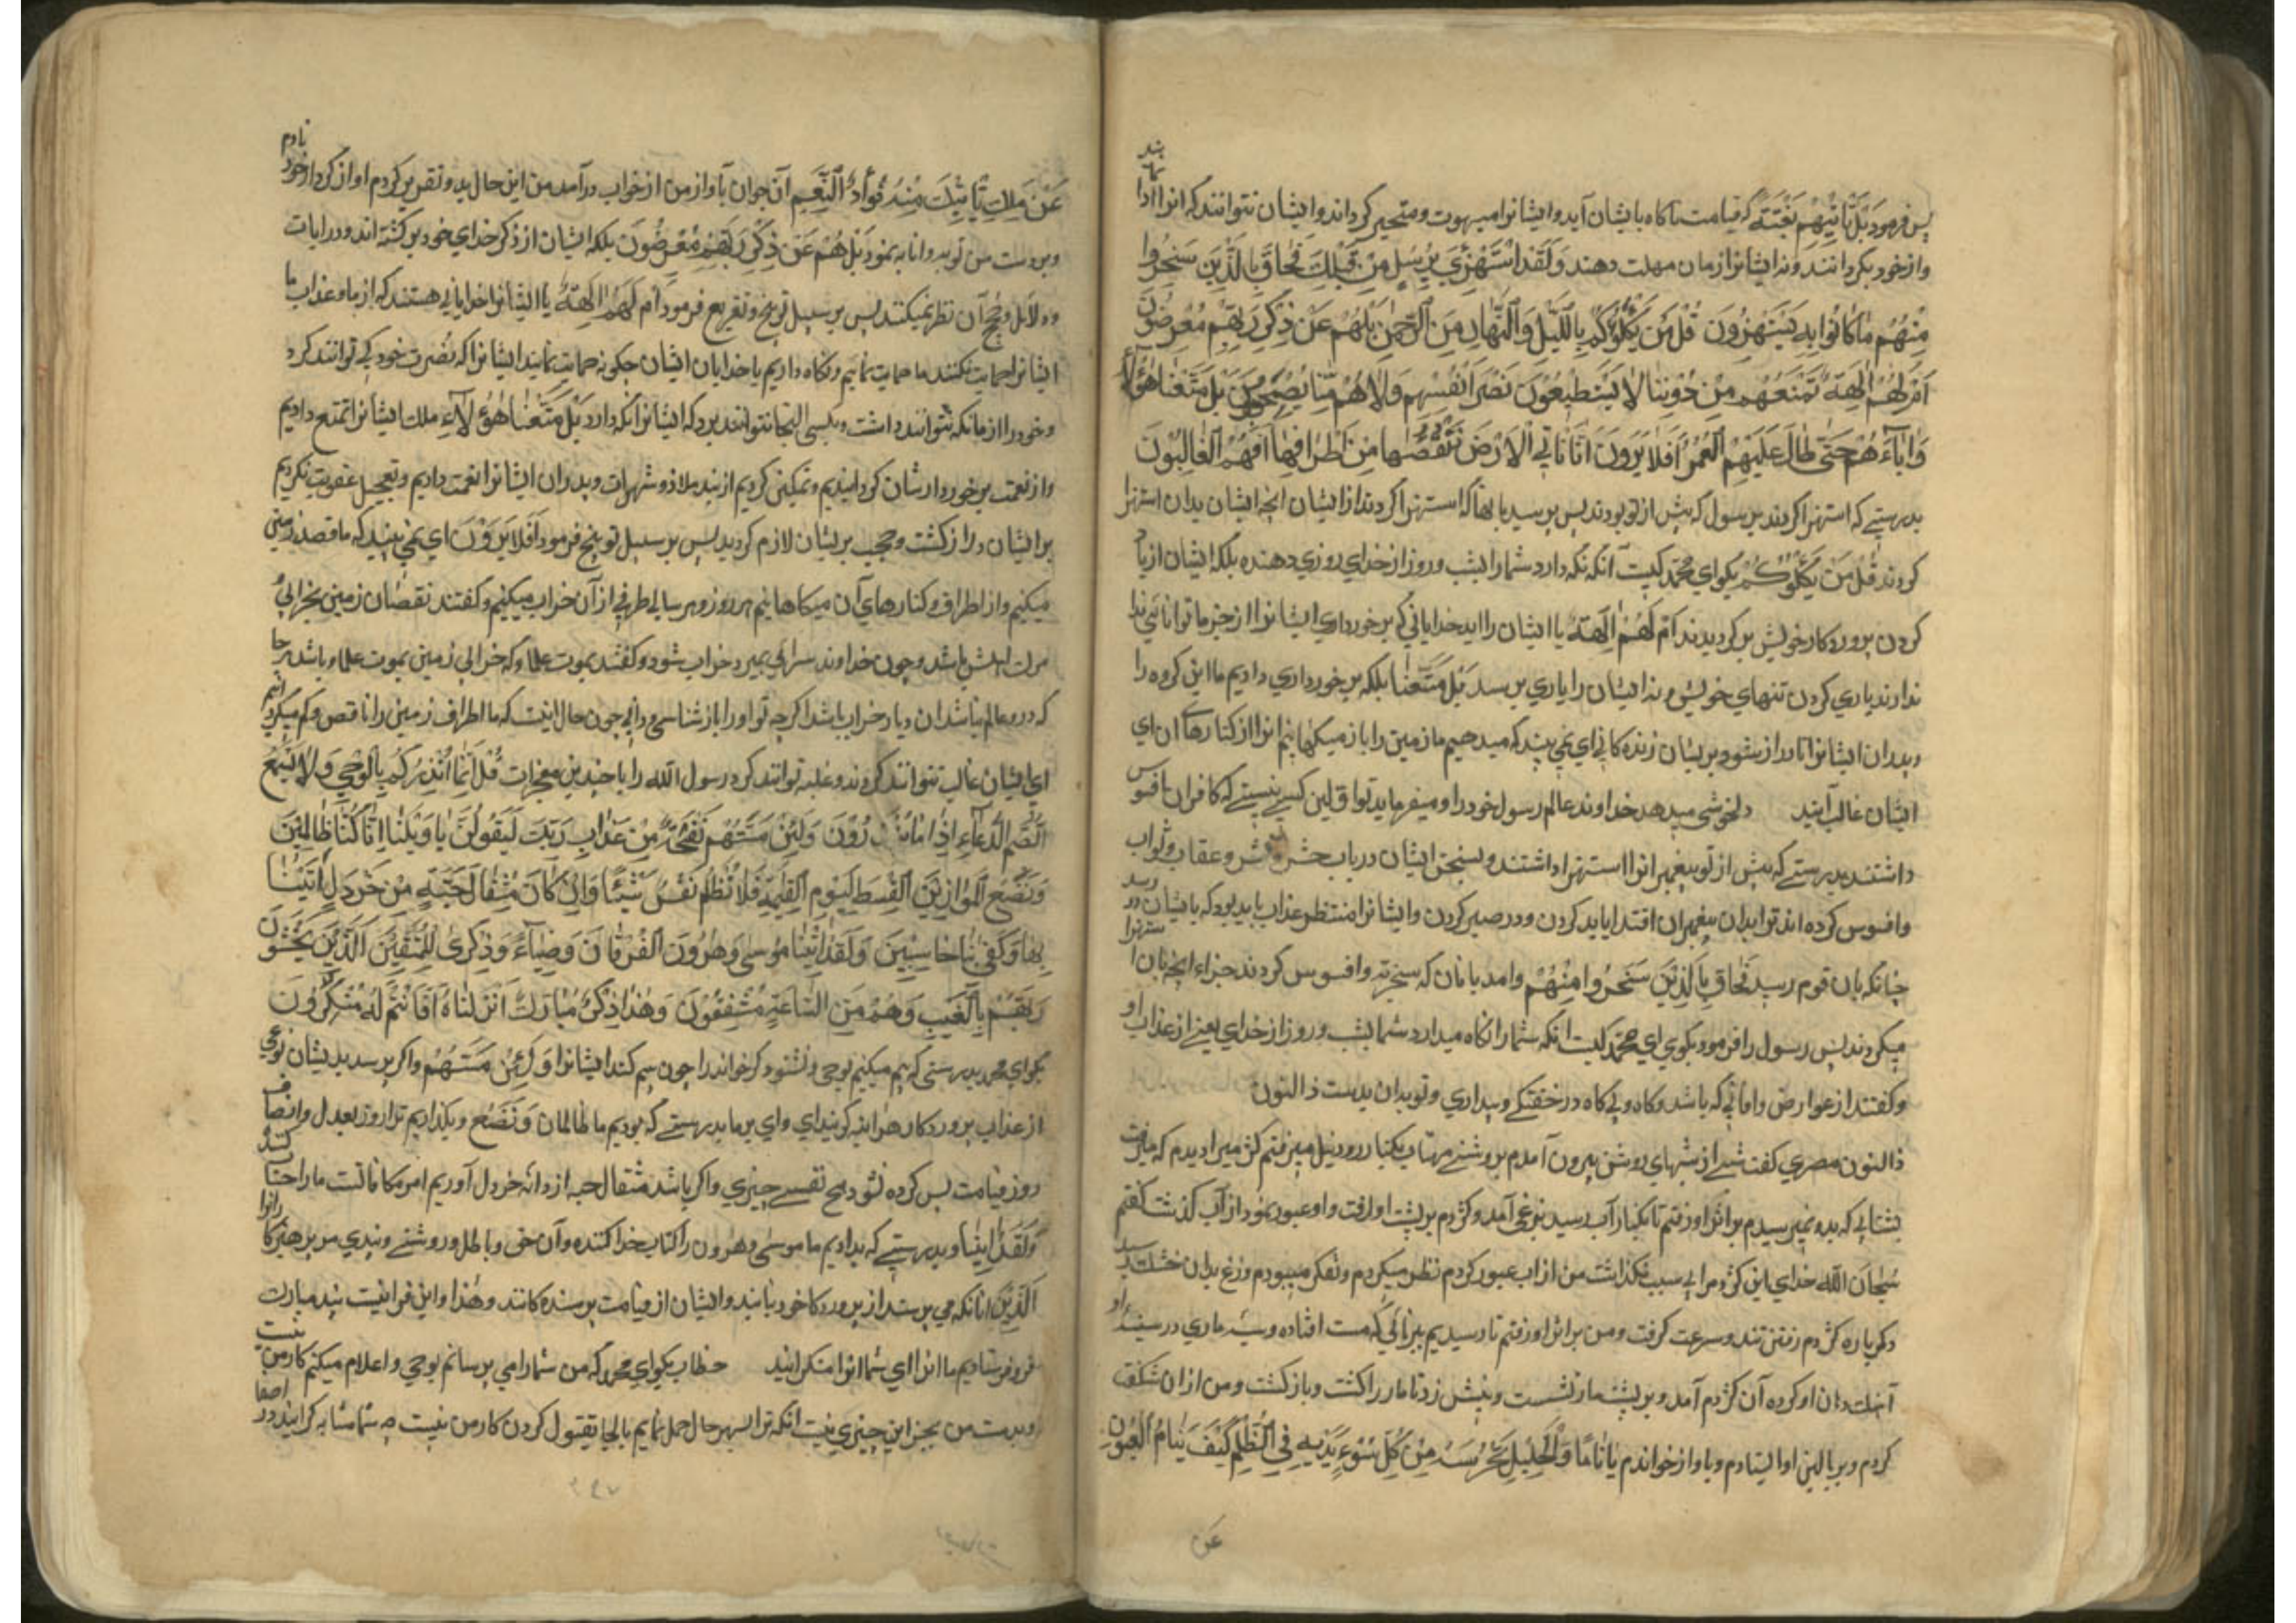 پس فرمود بَلْ تَأْتِيهِمْ بَغْتَةً که قیامت ناکاه بایشان آید و ایشانرا مبهوت و متحیر کرداند و ایشان نتوانند که انرا ادا
واز خود بکردانند و نه ایشانرا زمان مهلت دهند وَلَقَدِ اسْتُهْزِئَ بِرُسُلٍ مِنْ قَبْلِكَ فَحَاقَ بِالَّذِينَ سَخِرُوا
مِنْهُمْ مَا كَانُوا بِهِ يَسْتَهْزِؤُنَ قُلْ مَنْ يَكْلَؤُكُمْ بِاللَّيْلِ وَالنَّهَارِ مِنَ الرَّحْمٰنِ بَلْ هُمْ عَنْ ذِكْرِ رَبِّهِمْ مُعْرِضُونَ
اَمْ لَهُمْ اٰلِهَةٌ تَمْنَعُهُمْ مِنْ دُونِنَا لَا يَسْتَطِيعُونَ نَصْرَ اَنْفُسِهِمْ وَلَا هُمْ مِنَّا يُصْحَبُونَ بَلْ مَتَّعْنَا هٰؤُلَاءِ
وَاٰبَاءَهُمْ حَتّٰى طَالَ عَلَيْهِمُ الْعُمُرُ اَفَلَا يَرَوْنَ اَنَّا نَاْتِي الْاَرْضَ نَنْقُصُهَا مِنْ اَطْرَافِهَا اَفَهُمُ الْغَالِبُونَ
بدرستی که استهزا کردند بر سول که پیش از تو بودند پس برسید بانها که استهزا کردند از ایشان آنچه ایشان بدان استهزا
کردند قُلْ مَنْ يَكْلَؤُكُمْ بکو ای محمد کیست آنکه نکه دارد شما را بشب و روز از خدای روزی دهنده بلکه ایشان از یاد
کردن پروردکار خویش بر کردیدند اَمْ لَهُمْ اٰلِهَةٌ یا ایشان را اید خدایانی که برخورداری ایشانرا از جز ما توانائی ندا
ندارند یاری کردن تنهای خویش و نه ایشان را یاری برسد بَلْ مَتَّعْنَا بلکه برخورداری دادیم ما این کروه را
و پدران ایشانرا تا دراز شود بر ایشان زنده کانی ای نمی بینند که میدهیم ما زمین را باز میکهانیم انرا از کنارهاء ان ای
ایشان غالب آیند دلخوشی میدهد خداوند عالم رسول خود را و میفرماید تو اولین کسی نیستی که کافران افسوس
داشتند بدرستی که پیش از تو پیغمبرانرا استهزا داشتند و بسخن ایشان در باب حشر و نشر و عقاب و ثواب
وافسوس کرده اند ترا بدان پیغمبران اقتدا باید کردن و در صبر کردن و ایشانرا منتظر عذاب باید بود که بایشان در رسد
چنانکه بان قوم رسید فَحَاقَ بِالَّذِينَ سَخِرُوا مِنْهُمْ وامد بانان که سخریه وافسوس کردند جزاء انچه بان استهزا
میکردند پس رسول را فرمود بکوی ای محمد کیست انکه شما را نکاه میدارد شما بشب و روز از خدای یعنی از عذاب او
وکفتند از عوارض و آفاتی که باشد و کاه و بی کاه در خفتکی و بیداری و تو بدان بدست ذالنون
ذالنون مصری کفت شبی از شبهای روشن بیرون آمدم بروشنی مهتاب بکنار رود نیل میرفتم کژدمی را دیدم که میرفت
بشتابی که بدو نمیرسیدم بر اثر او رفتم تا بکنار آب رسید بزغی آمد و کژدم بر پشت او رفت و او عبور نمود از آب کذشت کفتم
سُبْحَانَ اللّٰه خدای این کژدم را بی سبب نکذاشت من از اب عبور کردم نظر میکردم و تفکر مینمودم وزغ بدان خشکی رسید
دکر باره کژدم رفتن تند و سرعت کرفت و من بر اثر او رفتم تا رسیدیم ببرنائی که مست افتاده و سیه ماری در سینۀ او
آهنک دهان او کرده آن کژدم آمد و بر پشت مار نشست و نیش زد تا مار را کشت و باز کشت و من از ان شکفت
کردم و بر بالین او ایستادم و باواز خواندم يَا نَائِمًا وَالْجَلِيلُ يَحْرُسُهُ مِنْ كُلِّ سُوءٍ يَدِبُّ فِي الظُّلَمِ كَيْفَ يَنَامُ الْعُيُونُ
عَنْ
عَنْ مَلِكٍ تَأْتِيكَ مِنْهُ فُوَائِدُ النِّعَمِ آن جوان بآواز من از خواب درآمد من این حال بدو تقریر کردم او از کردار خود نادم
و بر دست من توبه و انابه نمود بَلْ هُمْ عَنْ ذِكْرِ رَبِّهِمْ مُعْرِضُونَ بلکه ایشان از ذکر خدای خود بر کشته اند و در ایات
و دلایل و حجج آن نظر نمیکنند پس بر سبیل توبیخ و تقریع فرمود اَمْ لَهُمْ اٰلِهَةٌ یا ایشانرا خدایانی هستند که از ما و عذاب ما
ایشانرا حمایت نکنند ما حمایت نمائیم و نکاه داریم یا خدایان ایشان چکونه حمایت نمایند ایشانرا که نصرت خود کی توانند کرد
و خود را از ما نکه نتوانند داشت و بکسی التجا نتوانند برد که ایشانرا نکه دارد بَلْ مَتَّعْنَا هٰؤُلَاءِ ملک ایشانرا تمتع دادیم
واز نعمت برخوردارشان کردانیدیم و تمکینی کردیم از بند ملاذ و شهرات و پدران ایشانرا نعمت دادیم و تعجیل عقوبت نکردیم
بر ایشان دراز کشت و حجب بر ایشان لازم کردید پس بر سبیل توبیخ فرمود اَفَلَا يَرَوْنَ ای نمی بینید که ما قصد زمین
میکنیم و از اطراف و کنارهای آن میکاهانیم هر روز و هر سالی طرفی از آن خراب میکنیم و کفتند نقصان زمین بخرابی و
مرک اهلش باشد و چون خداوند سرائی بمیرد خراب شود و کفتند بموت علما و که خرابی زمین بموت علما و باشد هر جا
که درو عالم نباشد ان دیار خراب باشد اکر چه تو او را باز شناسی و دانی چون حال اینست که ما اطراف زمین را ناقص و کم میکردانیم
ای ایشان غالب نتوانند کردند و غلبه توانند کرد رسول الله را با چندین معجزات قُلْ اِنَّمَا اُنْذِرُكُمْ بِالْوَحْيِ وَلَا يَسْمَعُ
الصُّمُّ الدُّعَاءَ اِذَا مَا يُنْذَرُونَ وَلَئِنْ مَسَّتْهُمْ نَفْحَةٌ مِنْ عَذَابِ رَبِّكَ لَيَقُولُنَّ يَا وَيْلَنَا اِنَّا كُنَّا ظَالِمِينَ
وَنَضَعُ الْمَوَازِينَ الْقِسْطَ لِيَوْمِ الْقِيٰمَةِ فَلَا تُظْلَمُ نَفْسٌ شَيْئًا وَاِنْ كَانَ مِثْقَالَ حَبَّةٍ مِنْ خَرْدَلٍ اَتَيْنَا
بِهَا وَكَفٰى بِنَا حَاسِبِينَ وَلَقَدْ اٰتَيْنَا مُوسٰى وَهٰرُونَ الْفُرْقَانَ وَضِيَاءً وَذِكْرٰى لِلْمُتَّقِينَ الَّذِينَ يَخْشَوْنَ
رَبَّهُمْ بِالْغَيْبِ وَهُمْ مِنَ السَّاعَةِ مُشْفِقُونَ وَهٰذَا ذِكْرٌ مُبَارَكٌ اَنْزَلْنَاهُ اَفَاَنْتُمْ لَهُ مُنْكِرُونَ
بکو ای محمد بدرستی که بیم میکنیم بوحی و نشنود کر خواند را چون بیم کنند ایشانرا وَلَئِنْ مَسَّتْهُمْ واکر برسد بدیشان نوعی
از عذاب پروردکار هر اینه کویند ای وای بر ما بدرستی که بودیم ما ظالمان وَنَضَعُ و بکذاریم ترازو بعدل و انصاف
روز قیامت پس کرده نشود هیچ نفسی چیزی واکر باشد مثقال حبه از دانه خردل آوریم امر مکافاتست ما را حساب کنند
وَلَقَدْ اٰتَيْنَا و بدرستی که بدادیم ما موسی و هرون را کتاب جدا کننده و آن حق و باطل و روشنی و پندی مر پرهیزکارانرا
الَّذِينَ انانکه می پرستند از پروردکار خود بانید و ایشان از قیامت پرسنده کانند وَهٰذَا و این قرانیست پند مبارک
فرو فرستادیم ما انرا ای شما انرا منکرانید خطاب بکو ای محمد که من شما را می برسانم بوحی و اعلام میکنم کار من نیست
و بدست من بجز این چیزی نیست انکه ترا بهر حال حمل نمایم بالجا بقبول کردن کار من نیست چه شما مشابه کرانید در اصغا